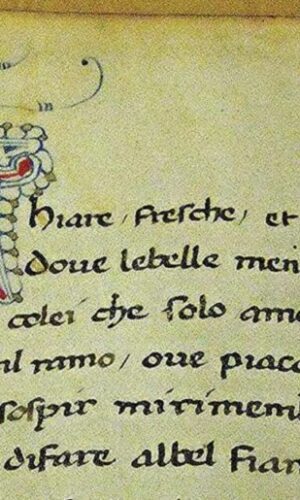 in
hiare / fresche / et
doue lebelle mem
colei che solo
il ramo / oue piac
sospir mirimem
difare albel fian